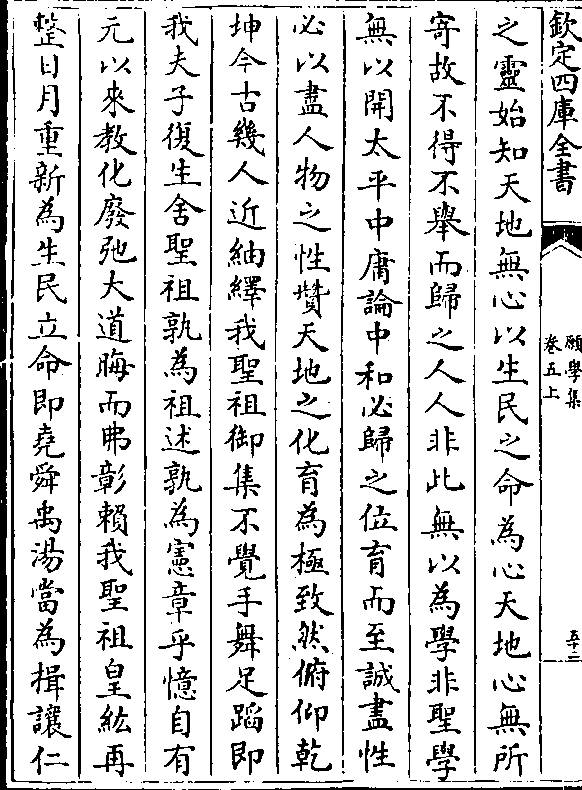 欽定四庫全書
願學集
卷五上
五十二
之靈始知天地無心以生民之命為心天地心無所
寄故不得不舉而歸之人人非此無以為學非聖學
無以開太平中庸論中和必歸之位育而至誠盡性
必以盡人物之性贊天地之化育為極致然俯仰乾
坤今古幾人近紬繹我聖祖御集不覺手舞足蹈即
我夫子復生舍聖祖孰為祖述孰為憲章乎憶自有
元以來教化廢弛大道晦而弗彰賴我聖祖皇紘再
整日月重新為生民立命即堯舜禹湯當為揖讓仁